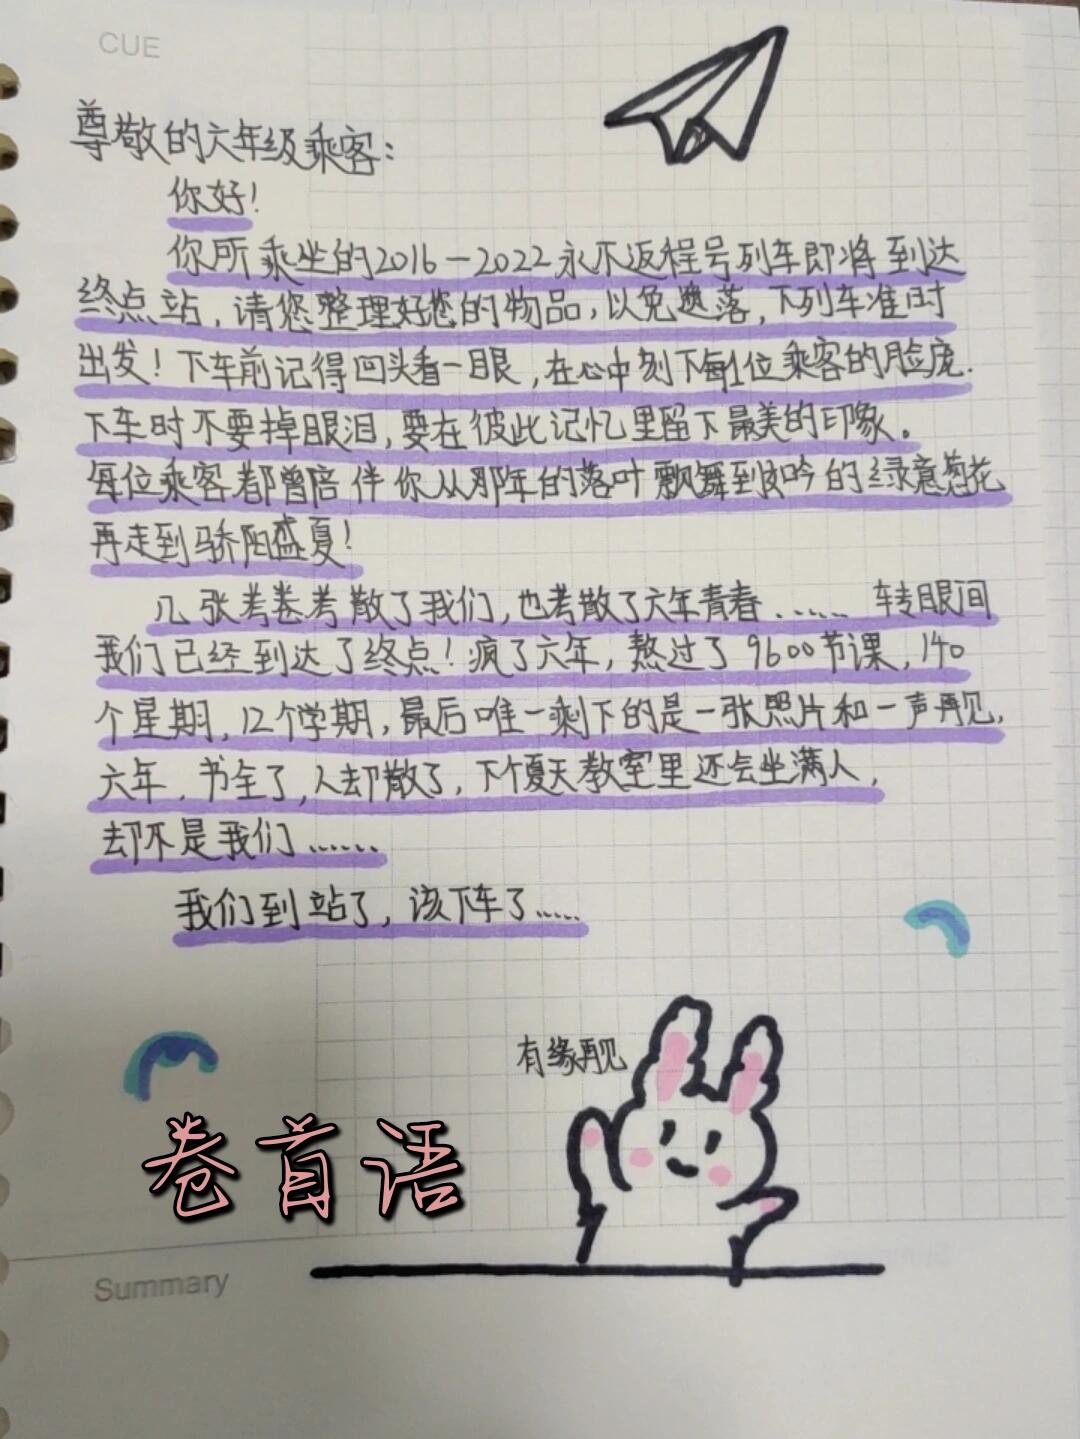 CUE
尊敬的六年级乘客：
你好！
你所乘坐的2016—2022永不返程号列车即将到达
终点站，请您整理好您的物品，以免遗落，下列车准时
出发！下车前记得回头看一眼，在心中刻下每1位乘客的脸庞.
下车时不要掉眼泪，要在彼此记忆里留下最美的印象。
每位乘客都曾陪伴你从那年的落叶飘舞到吟的绿意葱花
再走到骄阳盛夏！
几张考卷考散了我们，也考散了六年青春...... 转眼间
我们已经到达了终点！疯了六年，熬过了9600节课，140
个星期，12个学期，最后唯一剩下的是一张照片和一声再见，
六年，书全了，人却散了，下个夏天教室里还会坐满人，
却不是我们......
我们到站了，该下车了.....
有缘再见
卷首语
Summary